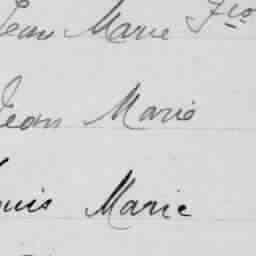 Jean Marie Fco
Jean Marie
ouis Marie